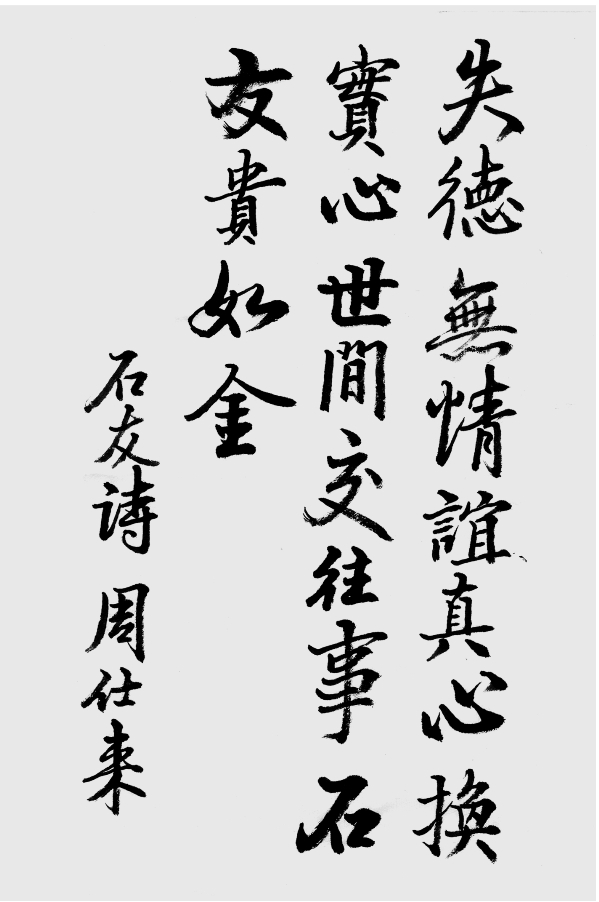 失德無情誼真心換
實心世間交往事石
友貴如金
石友詩 周仕来